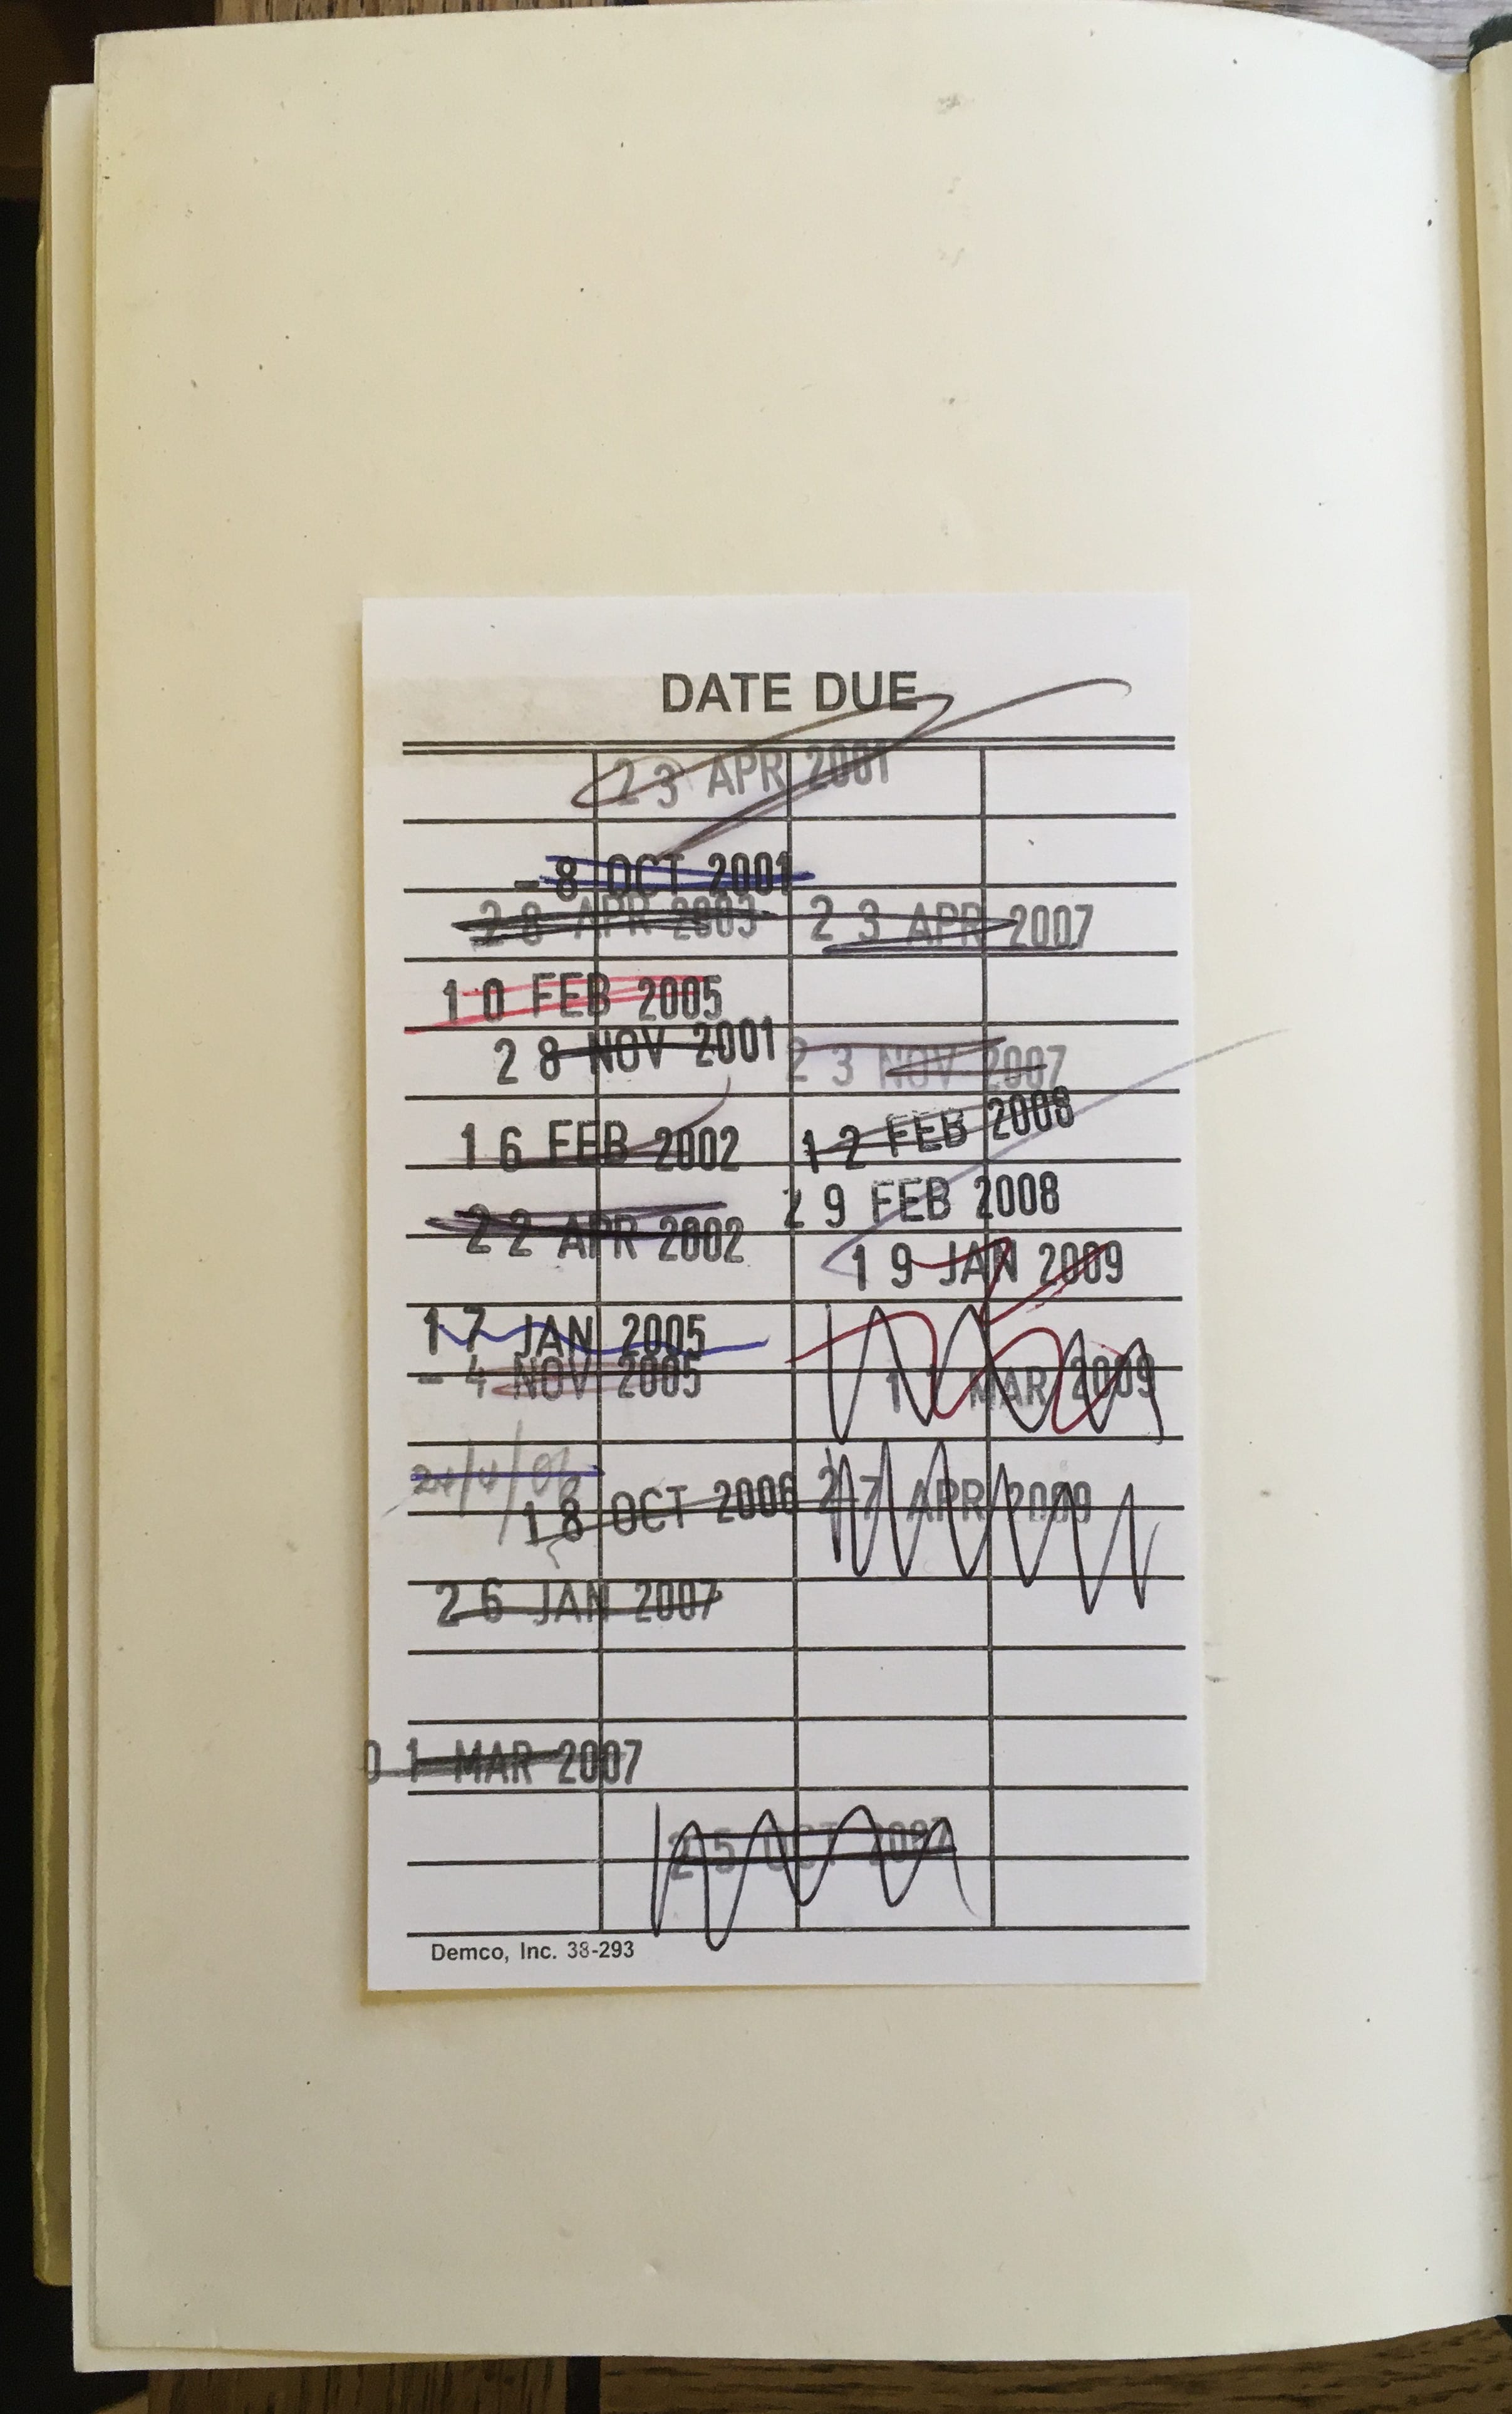 DATE DUE
23 APR 2001
-8 OCT 2001
28 APR 2003
23 APR 2007
10 FEB 2005
28 NOV 2001
23 NOV 2007
16 FEB 2002
12 FEB 2008
22 APR 2002
29 FEB 2008
19 JAN 2009
17 JAN 2005
-4 NOV 2005
MAR 2009
24/4/06
18 OCT 2006
27 APR 2009
26 JAN 2007
01 MAR 2007
25 OCT
Demco, Inc. 38-293